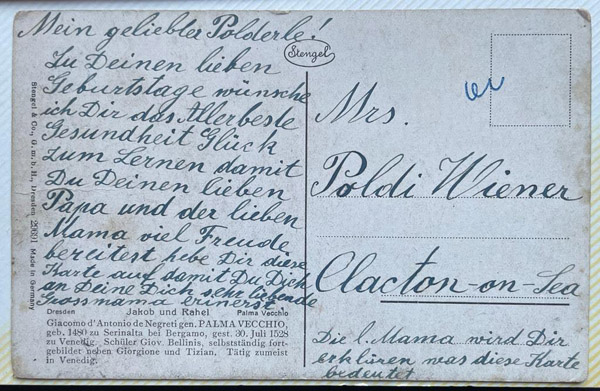 Mein geliebter Polderle!
Zu Deinen lieben
Geburtstage wünsche
ich Dir das Allerbeste
Gesundheit Glück
zum Lernen damit
Du Deinen lieben
Papa und der lieben
Mama viel Freude
bereitest hebe Dir diese
Karte auf damit Du Dich
an Deine Dich sehr liebende
Grossmama erinerst.
Stengel
Stengel & Co., G. m. b. H., Dresden 29031 Made in Germany
Dresden Jakob und Rahel Palma Vecchio
Giacomo d'Antonio de Negreti gen. PALMA VECCHIO,
geb. 1480 zu Serinalta bei Bergamo, gest. 30. Juli 1528
zu Venedig. Schüler Giov. Bellinis, selbstständig fort-
gebildet neben Giorgione und Tizian. Tätig zumeist
in Venedig.
Mrs.
Poldi Wiener
Clacton-on-Sea
Die l. Mama wird Dir
erklären was diese Karte
bedeutet